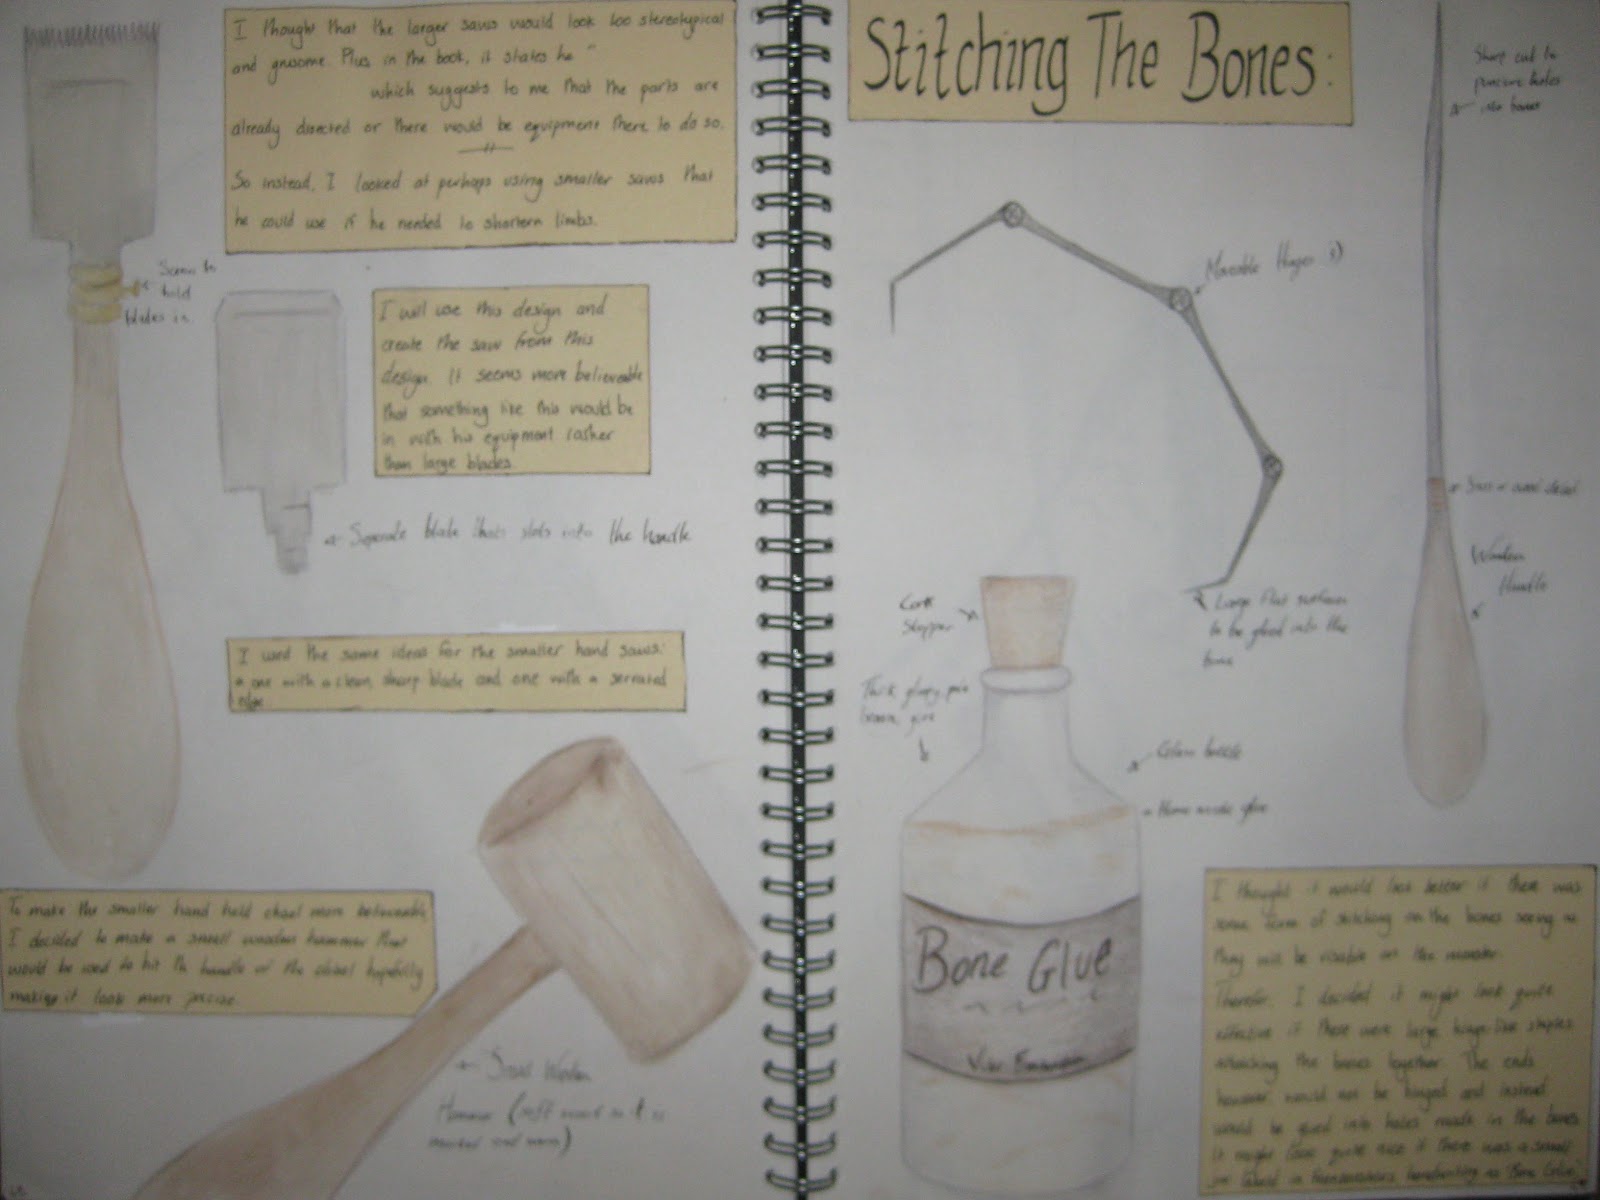 I thought that the larger saws would look too stereotypical
and grusome. Plus in the book, it states he "
which suggests to me that the parts are
already disected or there would be equipment there to do so.
So instead, I looked at perhaps using smaller saws that
he could use if he needed to shortern limbs.
Screw to
hold
blades in.
I will use this design and
create the saw from this
design. It seems more believeable
that something like this would be
in with his equipment rather
than large blades.
Seperate blade that slots into the handle
I used the same ideas for the smaller hand saws:
one with a clean, sharp blade and one with a serrated
edge.
To make the smaller hand held chisel more believeable,
I decided to make a small wooden hammer that
would be used to hit the handle of the chisel hopefully
making it look more precise.
Small Wooden
Hammer (soft wood so it is
marked and worn)
Stitching The Bones:
Sharp end to
puncture holes
into bones
Moveable Hinges
Large flat surfaces
to be glued into the
bone
Wooden
Handle
Cork
Stopper
Glass bottle
Home made glue
Bone Glue
I thought it would look better if there was
some form of stitching on the bones seeing as
they will be visable on the monster.
Therefor, I decided it might look quite
effective if there were large hinge-like staples
attaching the bones together. The ends
however would not be hinged and instead
would be glued into holes made in the bones
It might look quite nice if there was a small
handwriting as 'Bone Glue'